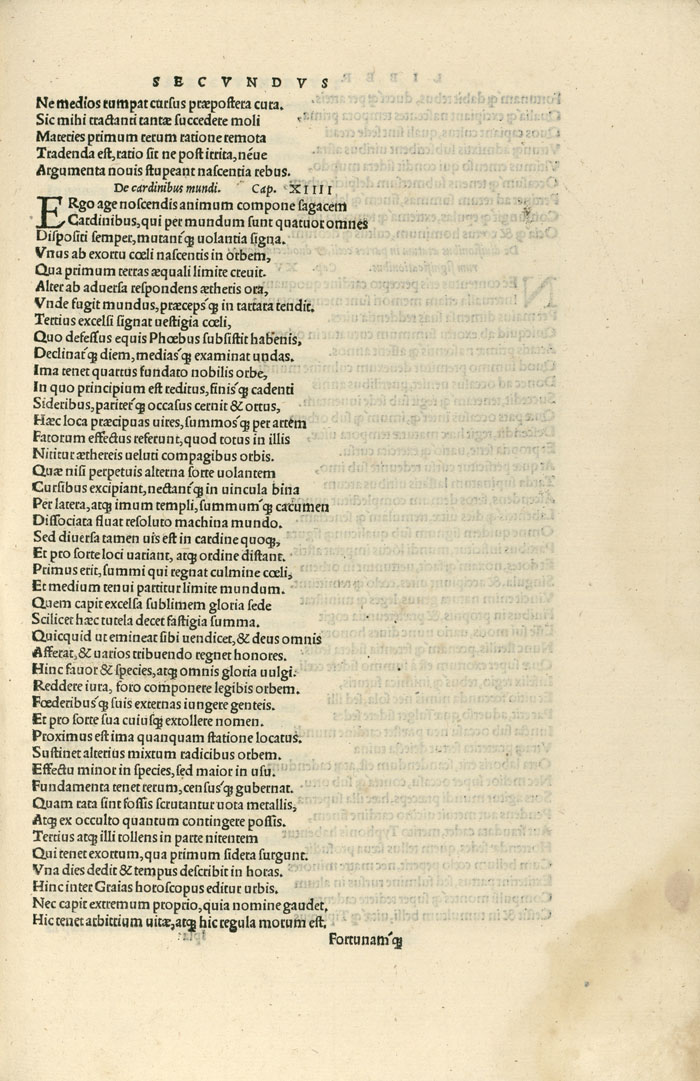 SECVNDVS
Ne medios rumpat cursus præpostera cura.
Sic mihi tractanti tantæ succedere moli
Materies primum rerum ratione remota
Tradenda est, ratio sit ne post irrita, néue
Argumenta nouis stupeant nascentia rebus.
De cardinibus mundi. Cap. XIIII
ERgo age noscendis animum compone sagacem
Cardinibus, qui per mundum sunt quatuor omnes
Dispositi semper, mutantꝗ́; uolantia signa.
Vnus ab exortu cœli nascentis in orbem,
Qua primum terras æquali limite creuit.
Alter ab aduersa respondens ætheris ora,
Vnde fugit mundus, præcepsꝗ́; in tartara tendit.
Tertius excelsi signat uestigia cœli,
Quo defessus equis Phœbus subsistit habenis,
Declinatꝗ́; diem, mediasꝗ́; examinat undas.
Ima tenet quartus fundato nobilis orbe,
In quo principium est reditus, finisꝗ́; cadenti
Sideribus, pariterꝗ́; occasus cernit & ortus,
Hæc loca præcipuas uires, summosꝗ́; per artem
Fatorum effectus referunt, quod totus in illis
Nititur æthereis ueluti compagibus orbis.
Quæ nisi perpetuis alterna sorte uolantem
Cursibus excipiant, nectantꝗ́; in uincula bina
Per latera, atꝗ; imum templi, summumꝗ́; cacumen
Dissociata fluat resoluto machina mundo.
Sed diuersa tamen uis est in cardine quoꝗ;,
Et pro sorte loci uariant, atꝗ; ordine distant.
Primus erit, summi qui regnat culmine cœli,
Et medium tenui partitur limite mundum.
Quem capit excelsa sublimem gloria sede
Scilicet hæc tutela decet fastigia summa.
Quicquid ut emineat sibi uendicet, & deus omnis
Afferat, & uarios tribuendo regnet honores.
Hinc fauor & species, atꝗ; omnis gloria uulgi.
Reddere iura, foro componere legibis orbem.
Fœderibusꝗ́; suis externas iungere genteis.
Et pro sorte sua cuiusꝗ; extollere nomen.
Proximus est ima quanquam statione locatus.
Sustinet alterius mixtum radicibus orbem.
Effectu minor in species, sed maior in usu.
Fundamenta tenet rerum, censusꝗ́; gubernat.
Quam rata sint fossis scrutantur uota metallis,
Atꝗ; ex occulto quantum contingere possis.
Tertius atꝗ; illi tollens in parte nitentem
Qui tenet exortum, qua primum sidera surgunt.
Vna dies dedit & tempus describit in horas.
Hinc inter Graias horoscopus editur urbis.
Nec capit extremum proprio, quia nomine gaudet.
Hic tenet arbitrium uitæ, atꝗ; hic regula morum est.
Fortunamꝗ́;